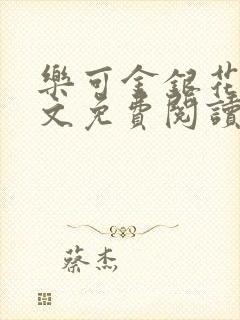 樂可金銀花
文免費閱讀
蔡杰